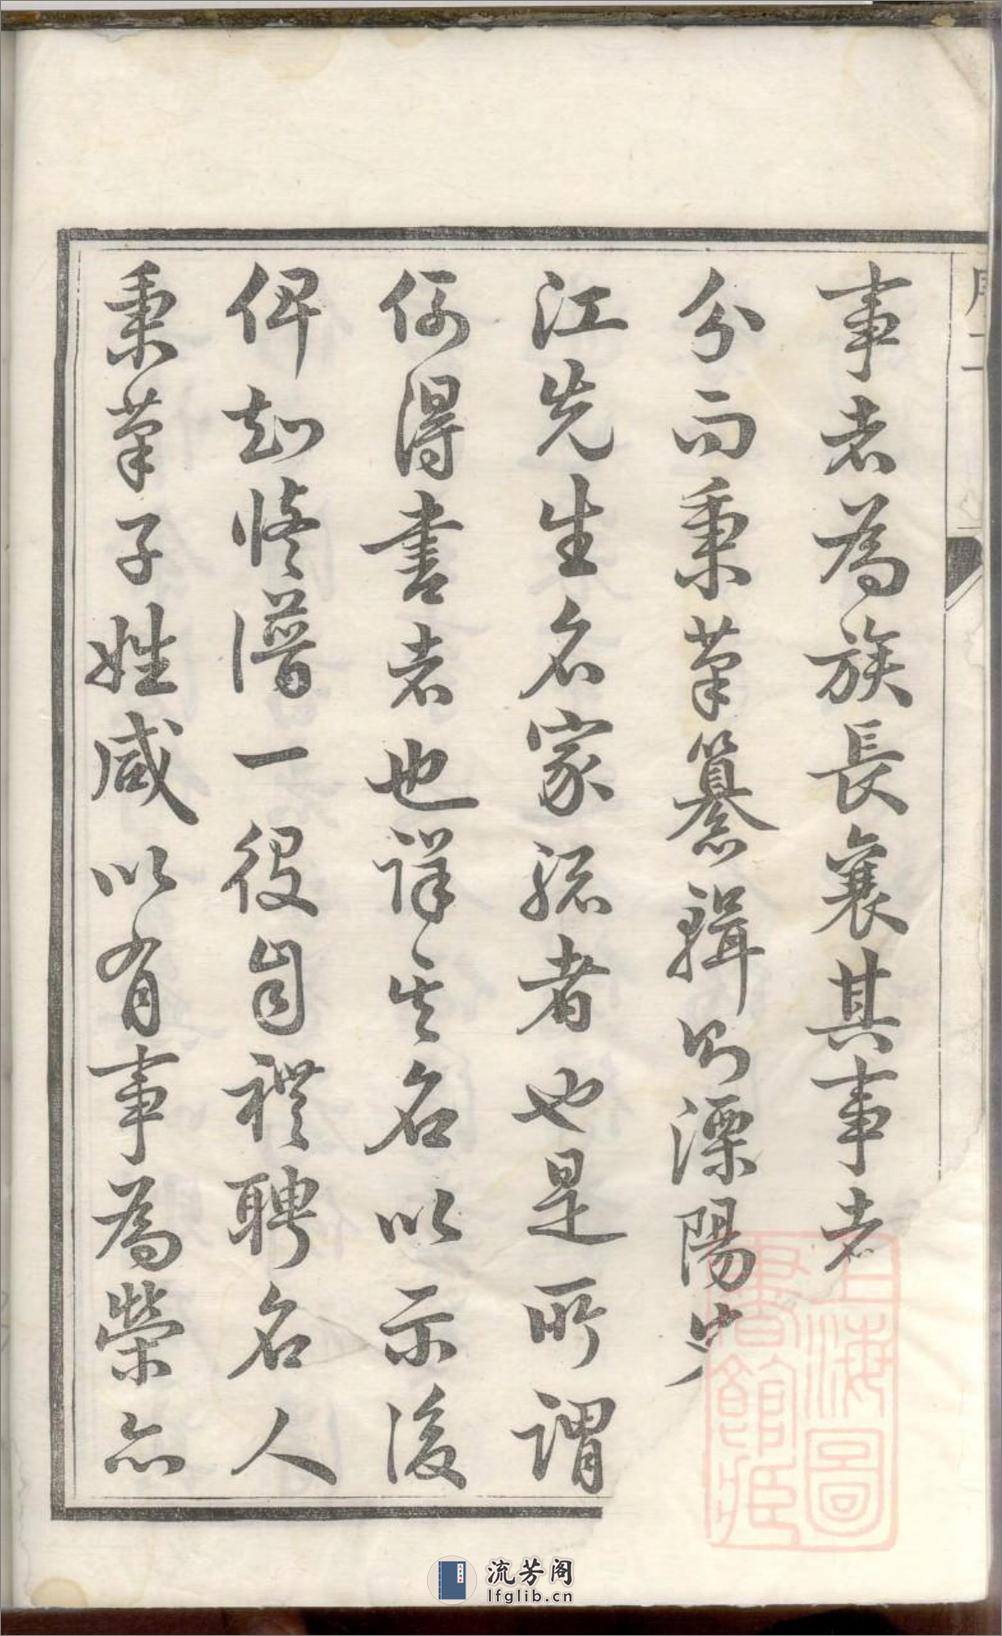 事者為族長襄其事者
分而秉筆纂輯則溧陽史
江先生名家孫者也是所謂
例得書者也詳其名以示後
俾知修譜一役自禮聘名人
秉筆子姓咸以有事為榮亦
序二
上海圖書館藏
流芳阁
lfglib.cn